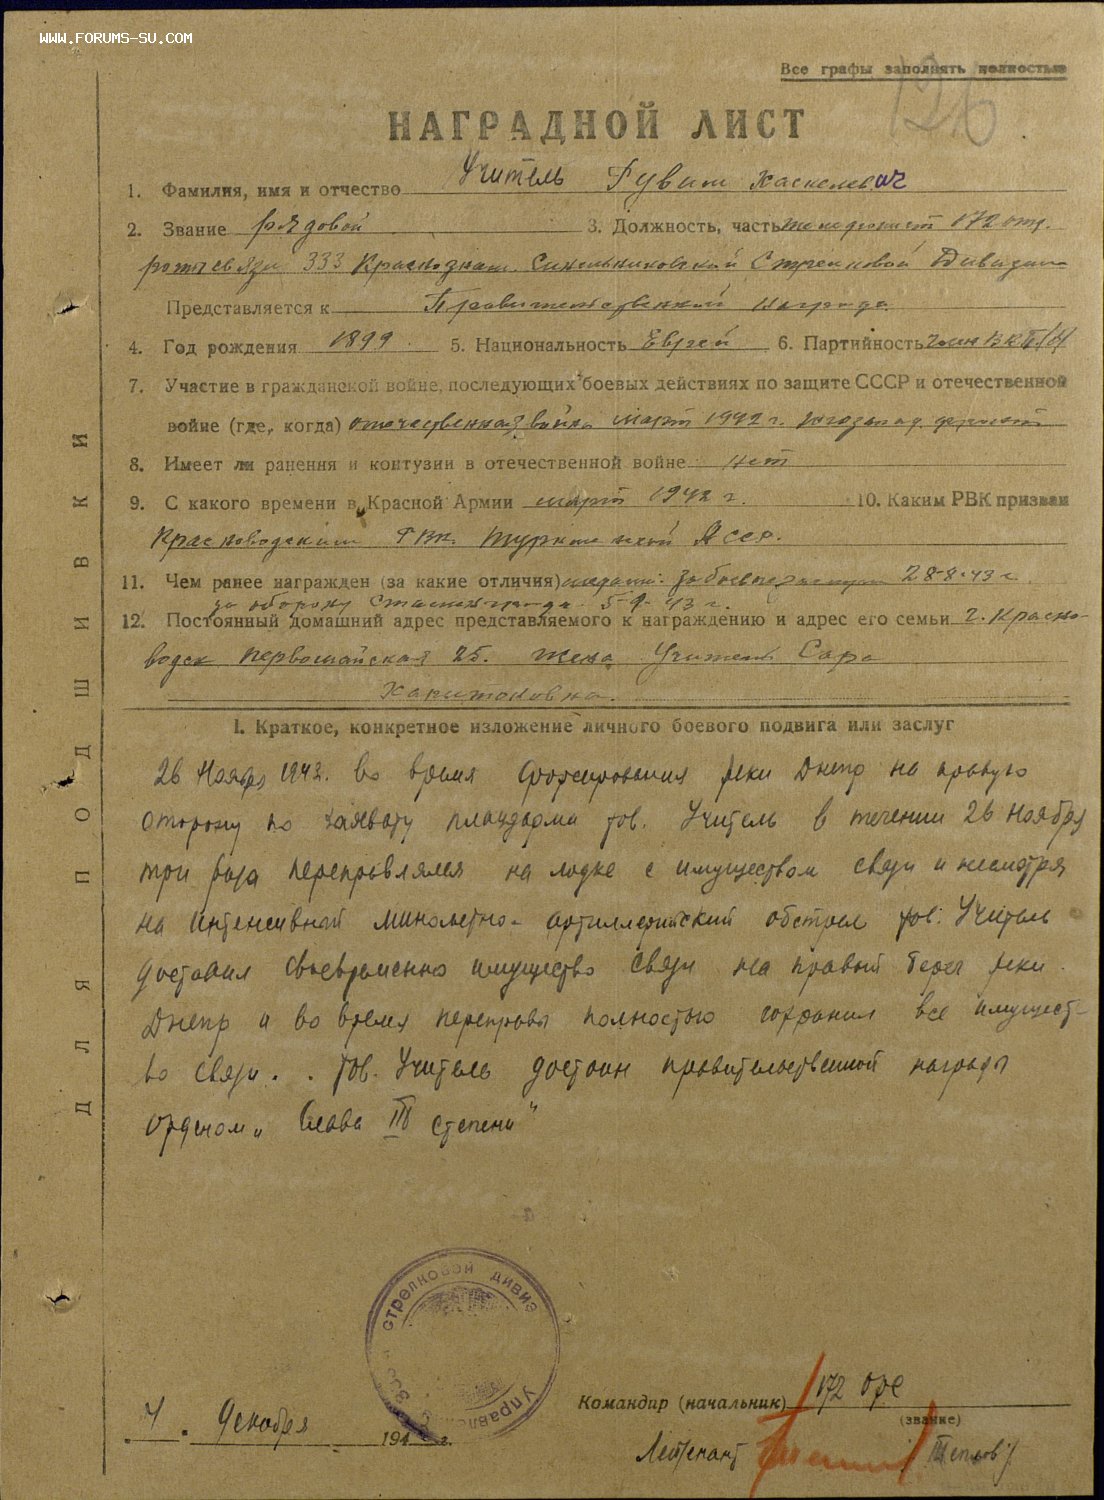 WWW.FORUMS-SU.COM
Все графы заполнять полностью
126
НАГРАДНОЙ ЛИСТ
1. Фамилия, имя и отчество Учитель Рувим Хаскелевич
2. Звание рядовой 3. Должность, часть телефонист 172 отд.
роты связи 333 Краснознам. Синельниковской Стрелковой Дивизии
Представляется к Правительственной награде
4. Год рождения 1899 5. Национальность Еврей 6. Партийность член ВКП/б/
7. Участие в гражданской войне, последующих боевых действиях по защите СССР и отечественной
войне (где, когда) отечественная война март 1942 г. югозапад. фронт
8. Имеет ли ранения и контузии в отечественной войне нет
9. С какого времени в Красной Армии март 1942 г. 10. Каким РВК призван
Красноводским ГВК. Туркменской ССР.
11. Чем ранее награжден (за какие отличия) медали: За боевые заслуги 28-8-43 г.
за оборону Сталинграда 5-9-43 г.
12. Постоянный домашний адрес представляемого к награждению и адрес его семьи г. Красно-
водск первомайская 25. жена Учитель Сара
Харитоновна.
I. Краткое, конкретное изложение личного боевого подвига или заслуг
26 Ноября 1943. во время форсирования реки Днепр на правую
сторону по захвату плацдарма тов. Учитель в течении 26 ноября
три раза переправлялся на лодке с имуществом связи и несмотря
на интенсивный минометно-артиллерийский обстрел тов. Учитель
доставил своевременно имущество связи на правый берег реки
Днепр и во время переправы полностью сохранил все имущест-
во связи. . Тов. Учитель достоин правительственной награды
Орденом „Слава III степени"
ДЛЯ ПОДШИВКИ
стрелковой дивиз
Управле
Командир (начальник) 172 орс
(звание)
7. Декабря 194 г.
Лейтенант Теплов